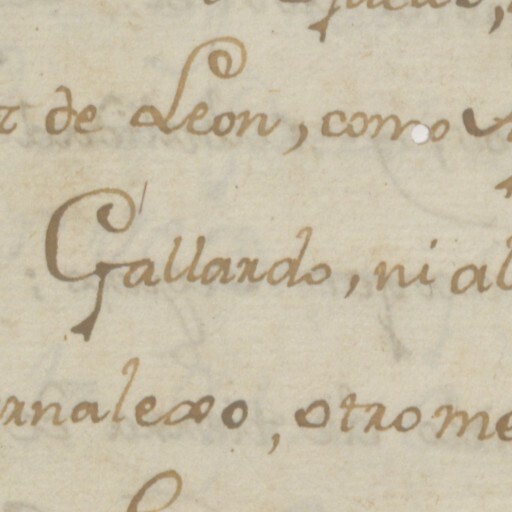 de Leon, como
Gallardo, ni al
rnalero, otro me